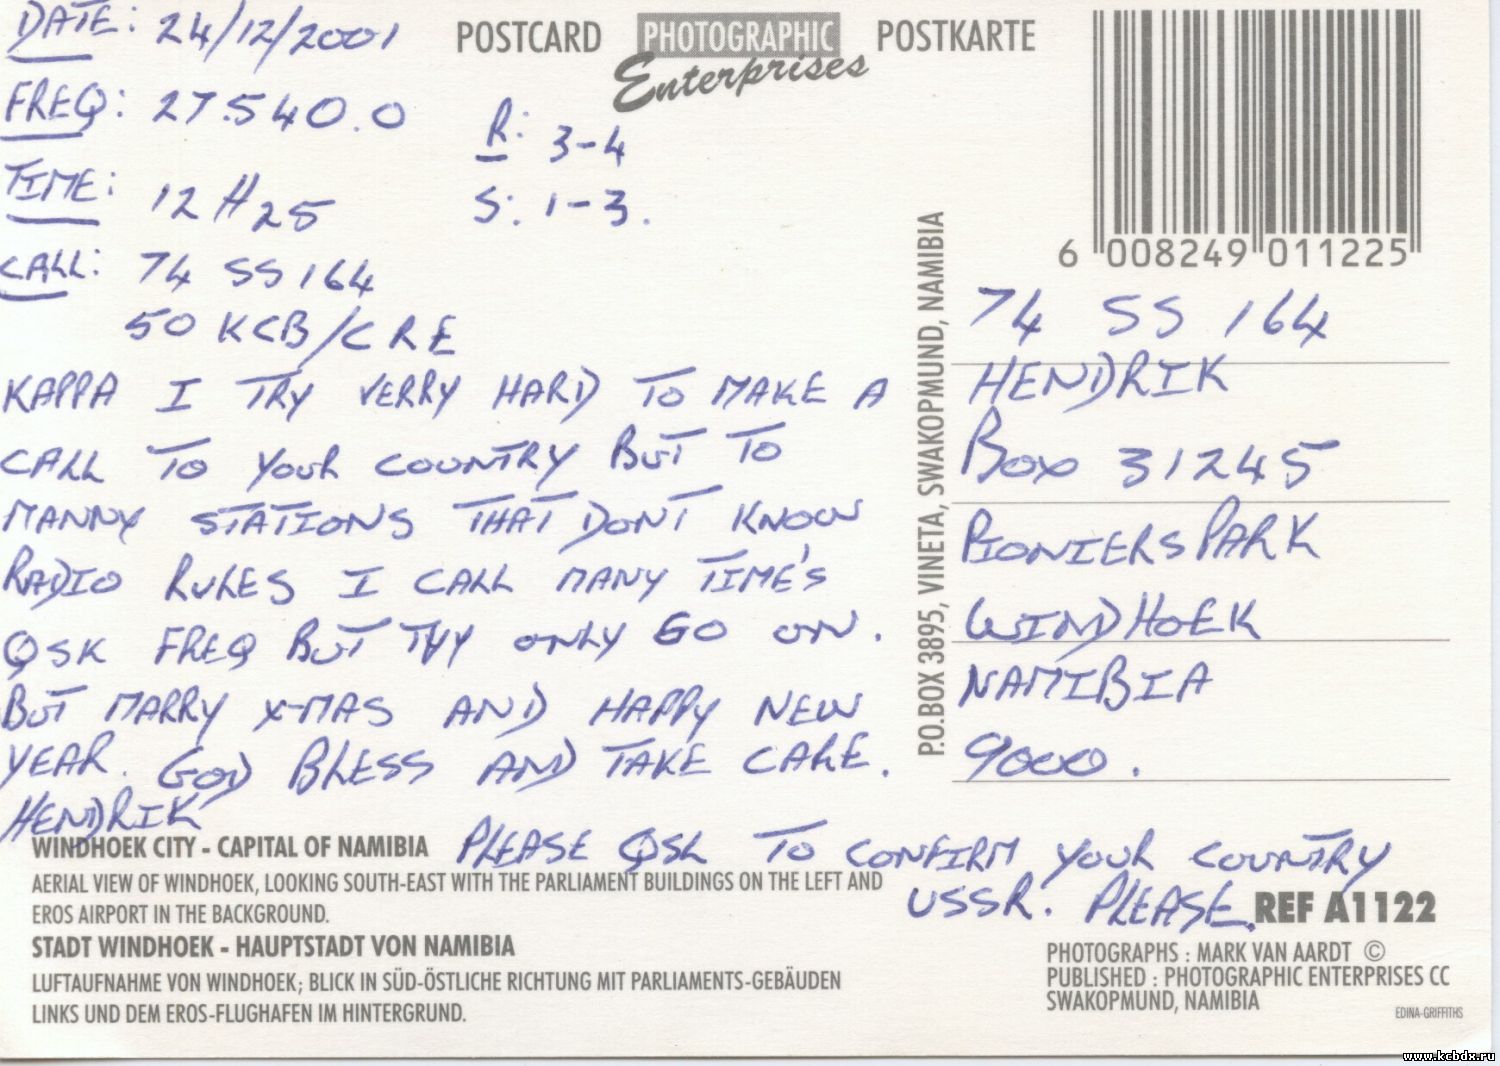 DATE: 24/12/2001
FREQ: 27.540.0
TIME: 12H25
CALL: 74 SS 164
50 KCB/CRE
R: 3-4
S: 1-3.
KAPPA I TRY VERRY HARD TO MAKE A
CALL TO YOUR COUNTRY BUT TO
MANNY STATIONS THAT DONT KNOW
RADIO RULES I CALL MANY TIME'S
QSK FREQ BUT THY ONLY GO ON.
BUT MARRY X-MAS AND HAPPY NEW
YEAR. GOD BLESS AND TAKE CARE.
HENDRIK
PLEASE QSL TO CONFIRM YOUR COUNTRY
USSR. PLEASE.
POSTCARD PHOTOGRAPHIC Enterprises POSTKARTE
6 008249 011225
P.O.BOX 3895, VINETA, SWAKOPMUND, NAMIBIA
74 SS 164
HENDRIK
BOX 31245
PIONIERSPARK
WINDHOEK
NAMIBIA
9000.
WINDHOEK CITY - CAPITAL OF NAMIBIA
AERIAL VIEW OF WINDHOEK, LOOKING SOUTH-EAST WITH THE PARLIAMENT BUILDINGS ON THE LEFT AND
EROS AIRPORT IN THE BACKGROUND.
STADT WINDHOEK - HAUPTSTADT VON NAMIBIA
LUFTAUFNAHME VON WINDHOEK; BLICK IN SÜD-ÖSTLICHE RICHTUNG MIT PARLIAMENTS-GEBÄUDEN
LINKS UND DEM EROS-FLUGHAFEN IM HINTERGRUND.
REF A1122
PHOTOGRAPHS : MARK VAN AARDT ©
PUBLISHED : PHOTOGRAPHIC ENTERPRISES CC
SWAKOPMUND, NAMIBIA
EDINA-GRIFFITHS
www.kcbdx.ru